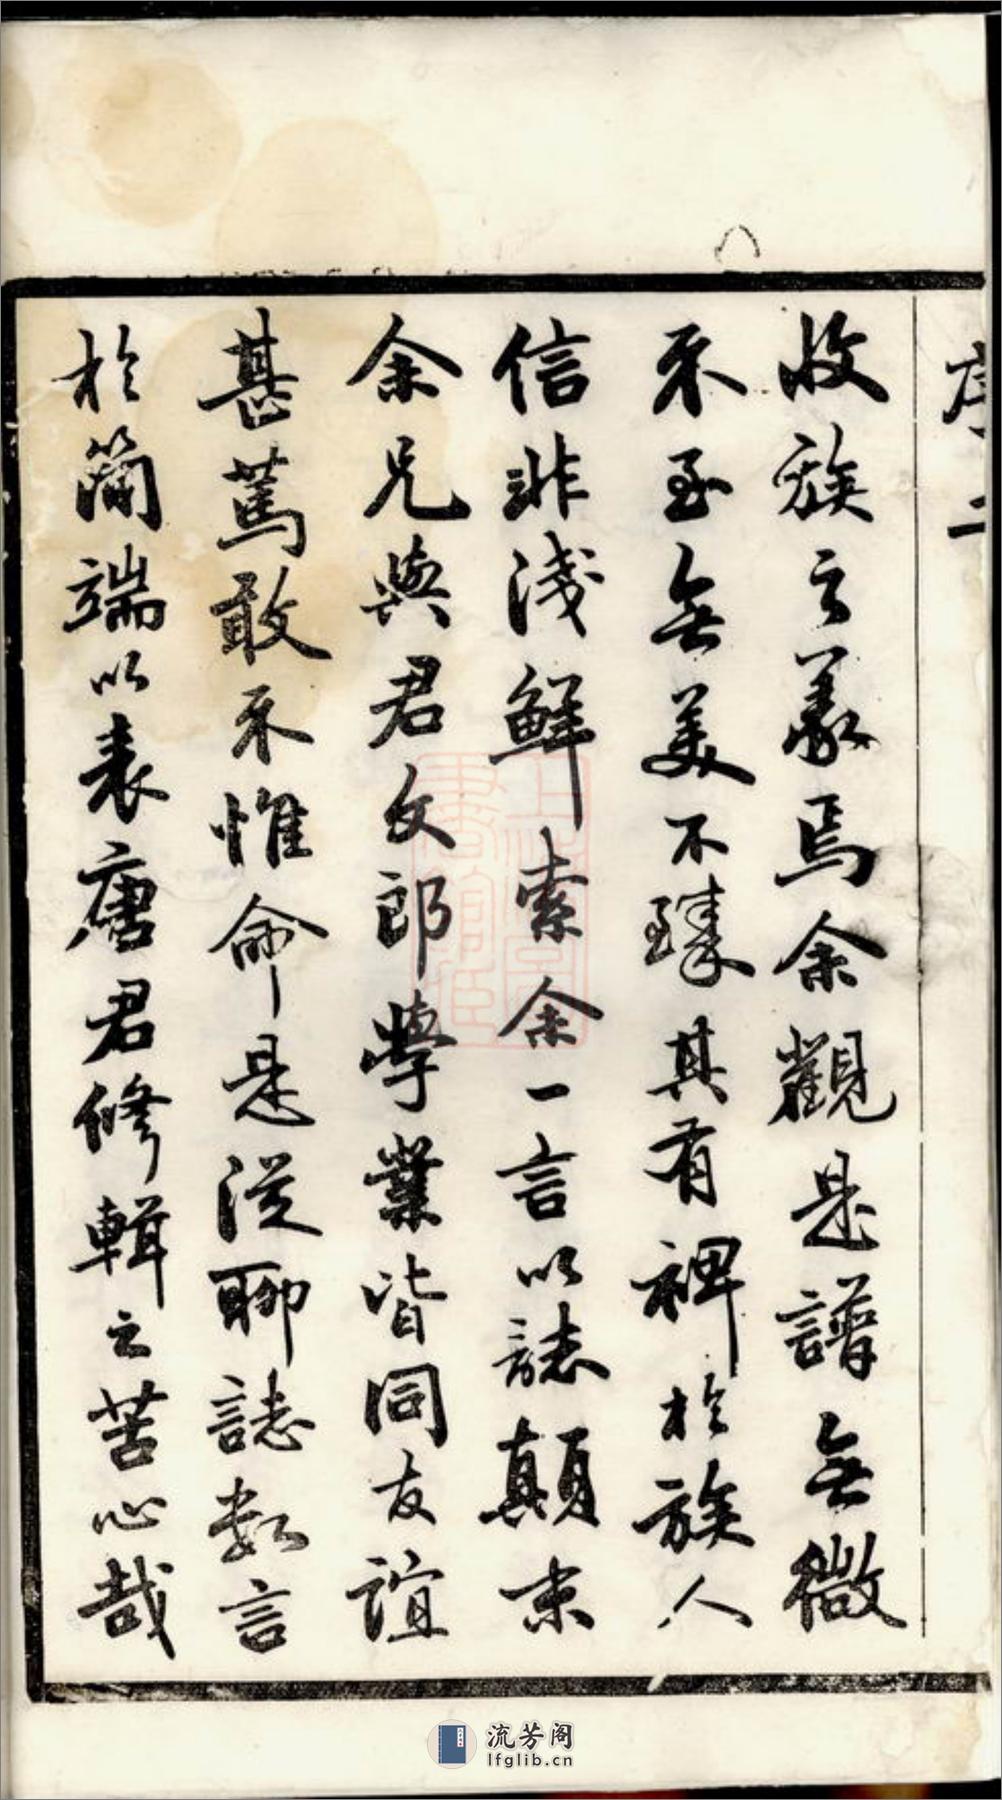 序二
收族之義焉余觀是譜無微
不至無美不臻其有裨於族人
信非淺鮮索余一言以誌顛末
余兄與君文郎學業皆同友誼
甚篤敢不惟命是從聊誌数言
於簡端以表唐君修輯之苦心哉
流芳阁
lfglib.cn